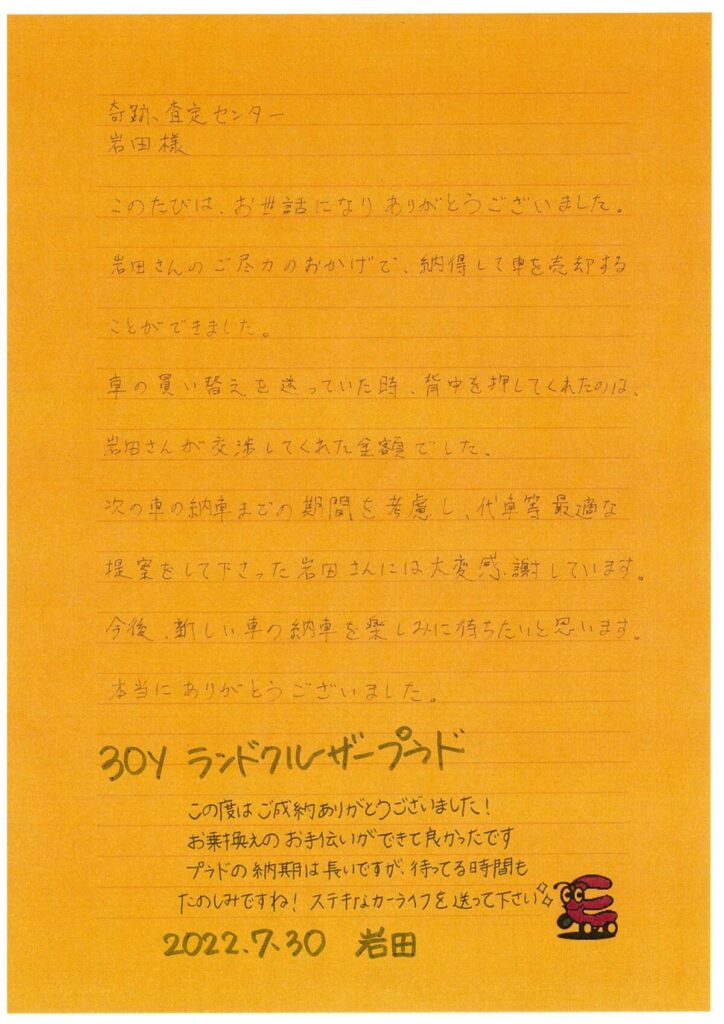 奇跡、査定センター
岩田様
このたびは、お世話になりありがとうございました。
岩田さんのご尽力のおかげで、納得して車を売却する
ことができました。
車の買い替えを迷っていた時、背中を押してくれたのは、
岩田さんが交渉してくれた金額でした。
次の車の納車までの期間を考慮し、代車等最適な
提案をして下さった岩田さんには大変感謝しています。
今後、新しい車の納車を楽しみに待ちたいと思います。
本当にありがとうございました。
30Y ランドクルーザープラド
この度はご成約ありがとうございました!
お乗換えのお手伝いができて良かったです
プラドの納期は長いですが、待ってる時間も
たのしみですね! ステキなカーライフを送って下さい
2022.7.30 岩田